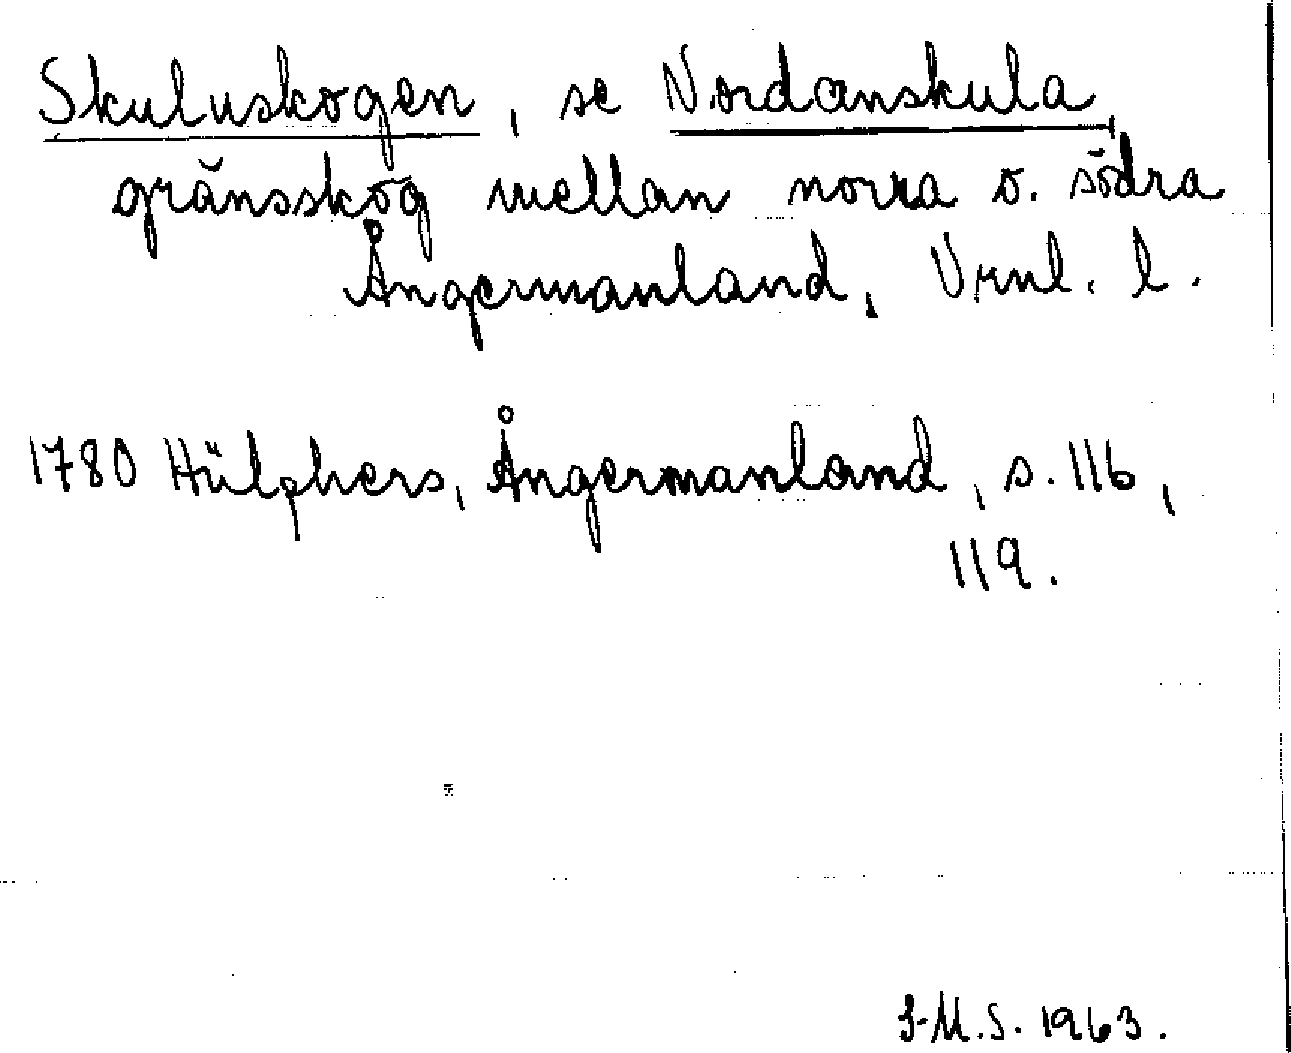 Skuluskogen, se Nordanskula,
gränsskog mellan norra o. södra
Ångermanland, Vrnl. l.
1780 Hülphers, Ångermanland, s. 116,
119.
J-M.S. 1963.